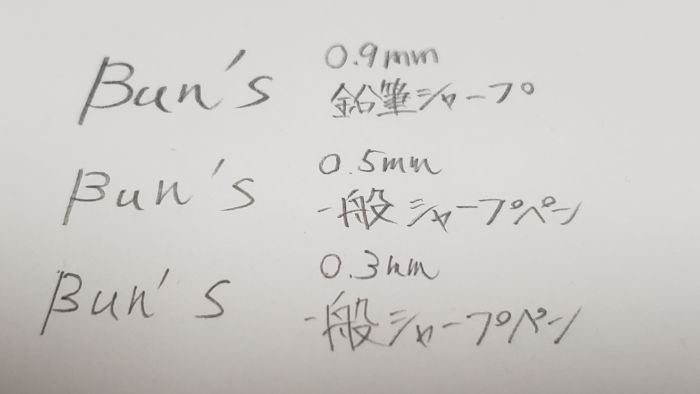 Bun's 0.9mm
鉛筆シャープ
Bun's 0.5mm
一般シャープペン
Bun's 0.3mm
一般シャープペン